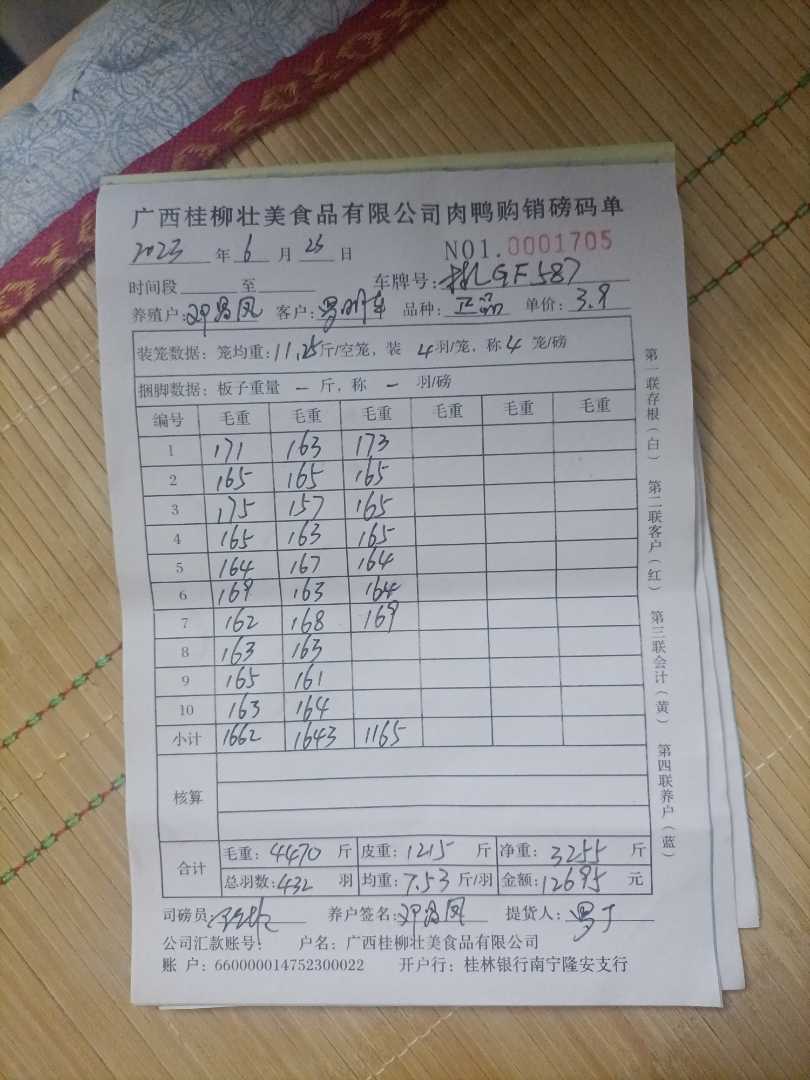 广西桂柳壮美食品有限公司肉鸭购销磅码单
2023 年 6 月 25 日 NO1.0001705
时间段 至 车牌号: GF587
养殖户: 邓 凤 客户: 品种: 正品 单价: 3.9
装笼数据: 笼均重: 11.25 斤/空笼, 装 4 羽/笼, 称 4 笼/磅
捆脚数据: 板子重量 — 斤, 称 — 羽/磅
编号 毛重 毛重 毛重 毛重 毛重 毛重
1 171 163 173
2 165 165 165
3 175 157 165
4 165 163 165
5 164 167 164
6 169 163 164
7 162 168 169
8 163 163
9 165 161
10 163 164
小计 1662 1643 1165
核算
合计 毛重: 4470 斤 皮重: 1215 斤 净重: 3255 斤
总羽数: 432 羽 均重: 7.53 斤/羽 金额: 12695 元
司磅员: 养户签名: 邓 凤 提货人:
公司汇款账号: 户名: 广西桂柳壮美食品有限公司
账 户: 660000014752300022 开户行: 桂林银行南宁隆安支行
第一联存根(白) 第二联客户(红) 第三联会计(黄) 第四联养户(蓝)